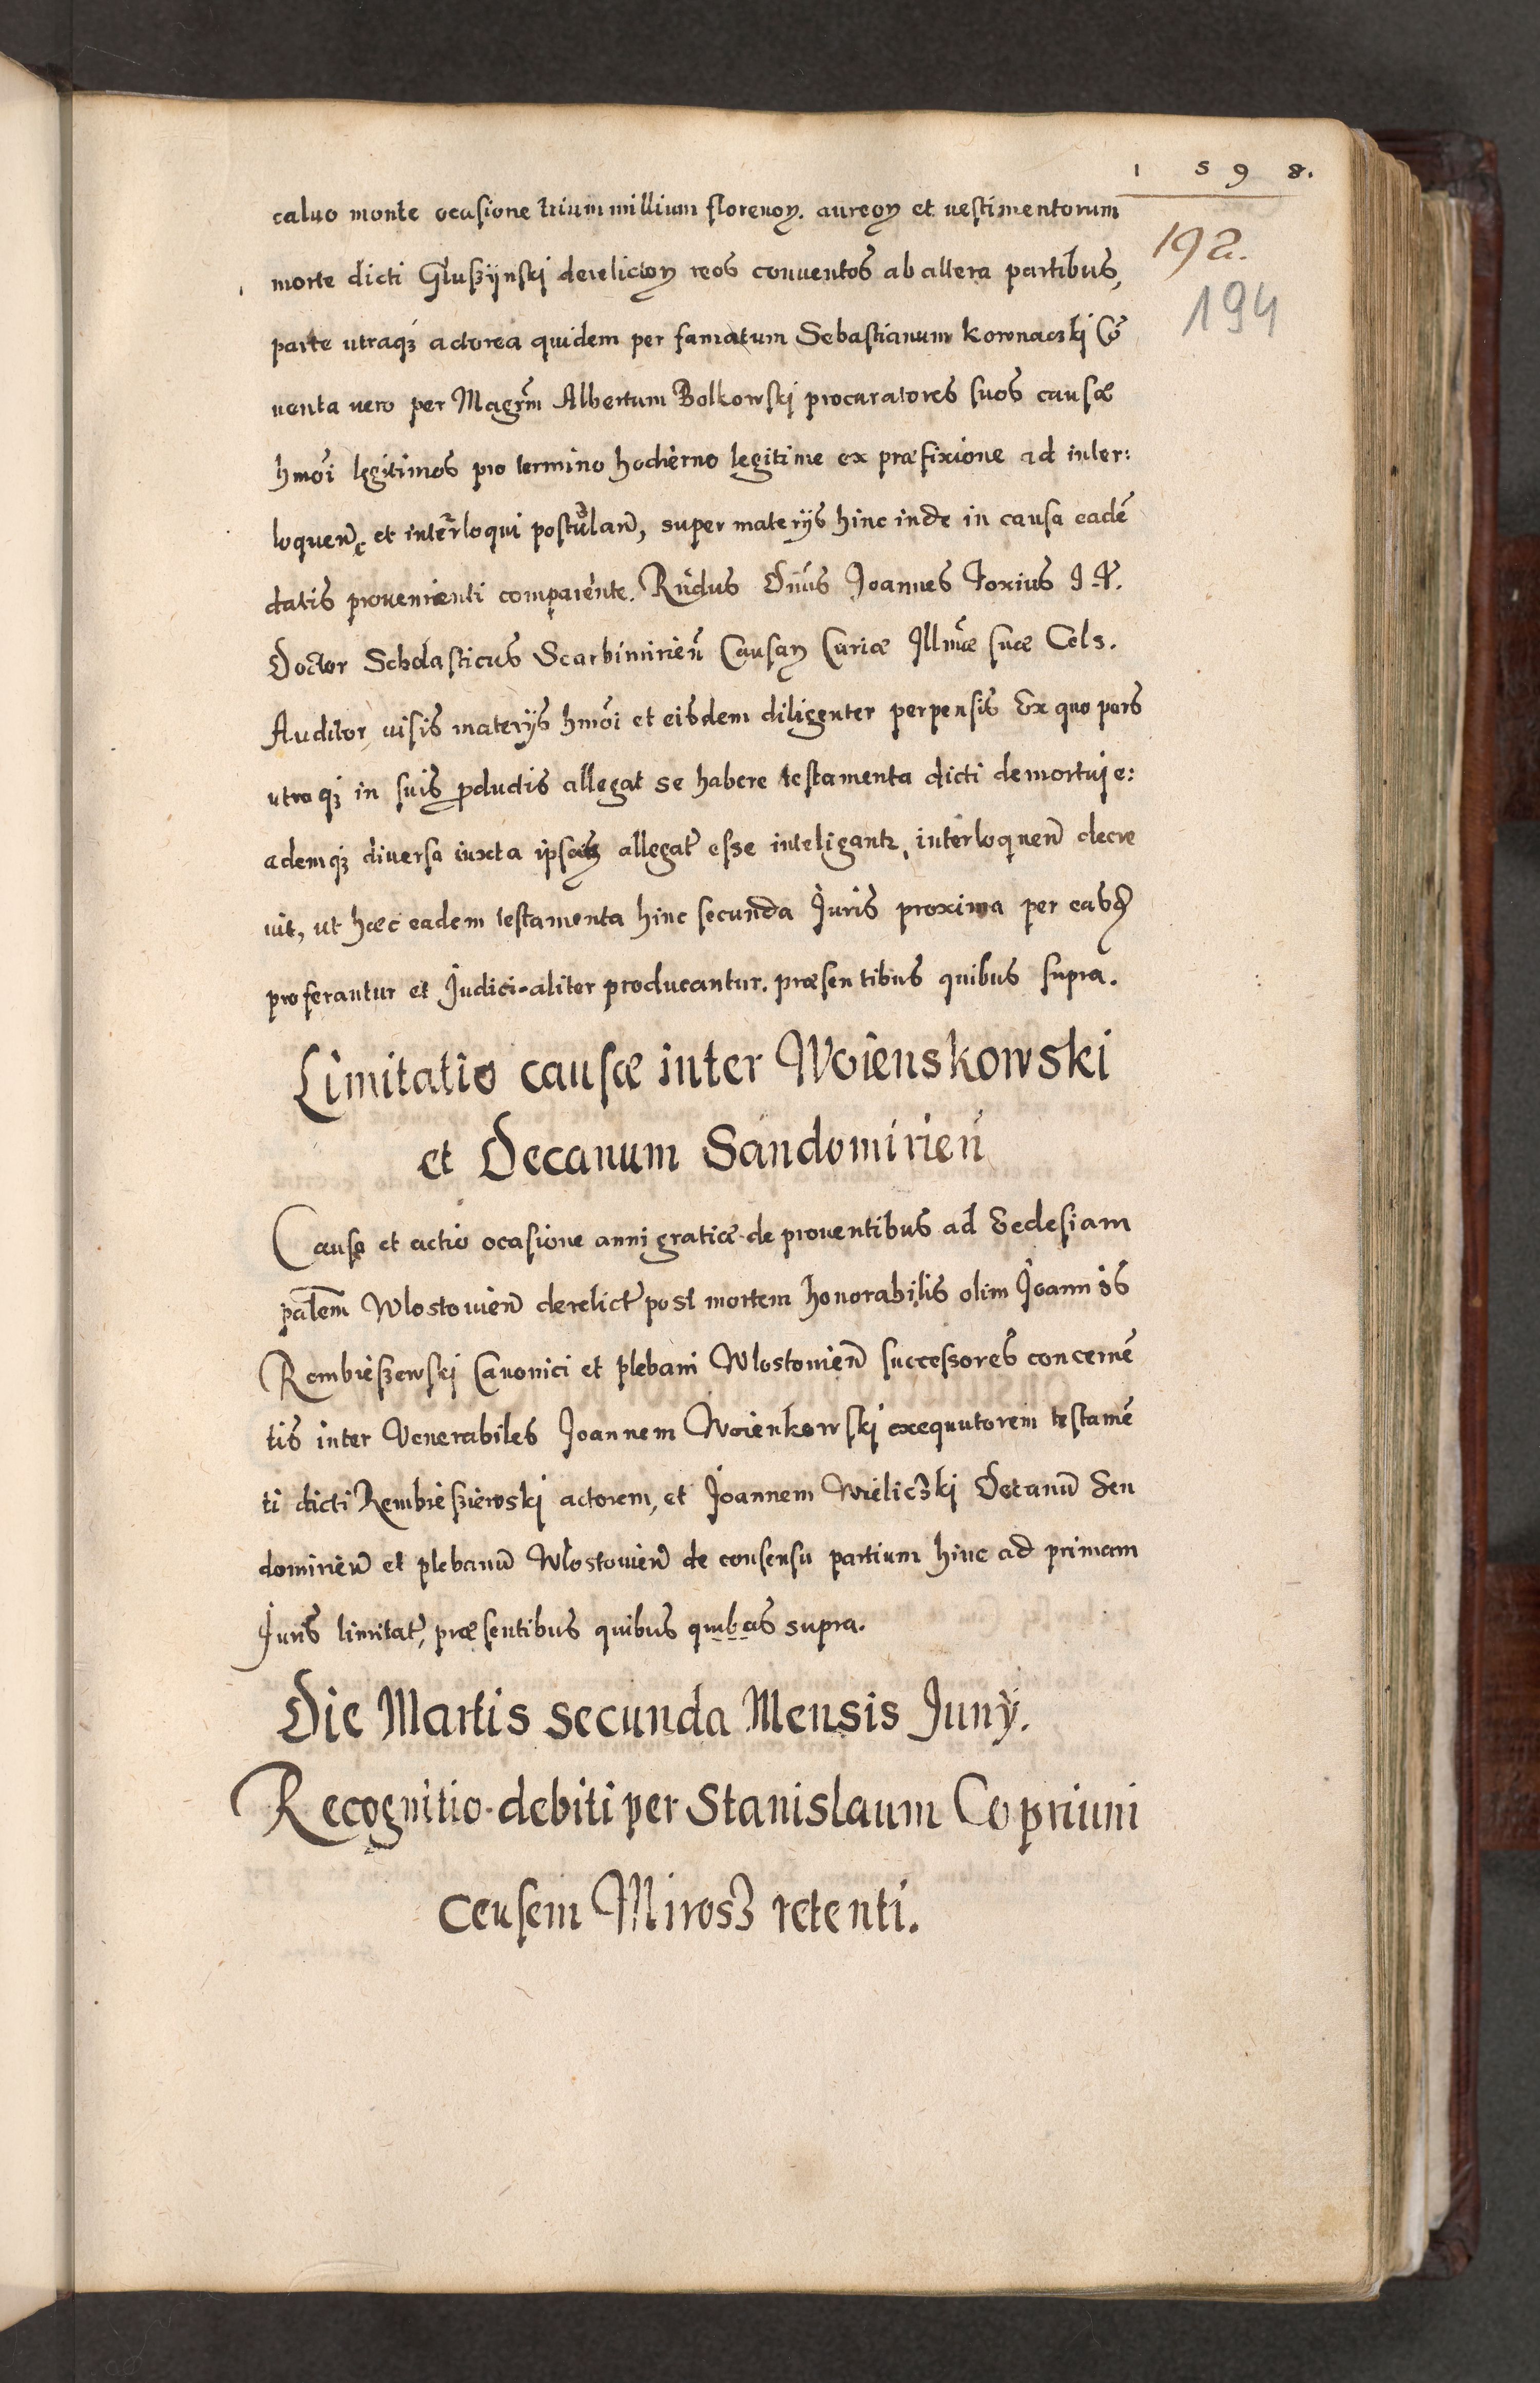 1 5 9 8.
192.
194
caluo monte ocasione trium millium florenoꝝ. aureoꝝ et uestimentorum
morte dicti Gluszÿnski derelictoꝝ reos conuentos ab altera partibus,
parte utraqꝫ actorea quidem per famatum Sebastianum Kownaczki Cõ
uenta uero per Magrm̃ Albertum Bolkowski procuratores suos causæ
hmõi legitimos pro termino hodierno legitime ex præfixione ad inter:
loquen̄ et interloqui postulan̄, super materijs hinc inde in causa eadẽ
datis prouenienti comparente. Rn̄dus Dn̄us Joannes Foxius J. V.
Doctor Scholasticus Scarbimirien̄ Causaꝝ Curiæ Illmæ suæ Cels.
Auditor, uisis materijs hmõi et eisdem diligenter perpensis Ex quo pars
utraqꝫ in suis ꝓductis allegat se habere testamenta dicti demortui e:
ademqꝫ diuersa iuxta ipsaꝝ allegat̃ esse inteligantr, interloquen̄ decre
uit, ut hæc eadem testamenta hinc secunda Juris proxima per easdꝫ
proferantur et Judici-aliter producantur. præsentibus quibus supra.
Limitatio causæ inter Woienskowski
et Decanum Sandomirien̄
Causa et actio ocasione anni gratiæ de prouentibus ad Ecclesiam
pãlem Wlostouien̄ derelict̃ post mortem honorabilis olim Joannis
Rembieszewski Canonici et plebani Wlostouien̄ successores concernẽ
tis inter Venerabiles Joannem Woienkowski exequutorem testamẽ
ti dicti Rembiesziewski actorem, et Joannem Wieliczki Decanũ Sen
domirien̄ et plebanũ Wlostouien̄ de consensu partium hinc ad primam
Juris limitat̃, præsentibus quibus quibus supra.
Die Martis secunda Mensis Junÿ.
Recognitio debiti per Stanislaum Copriuni
censem Mirosz retenti.